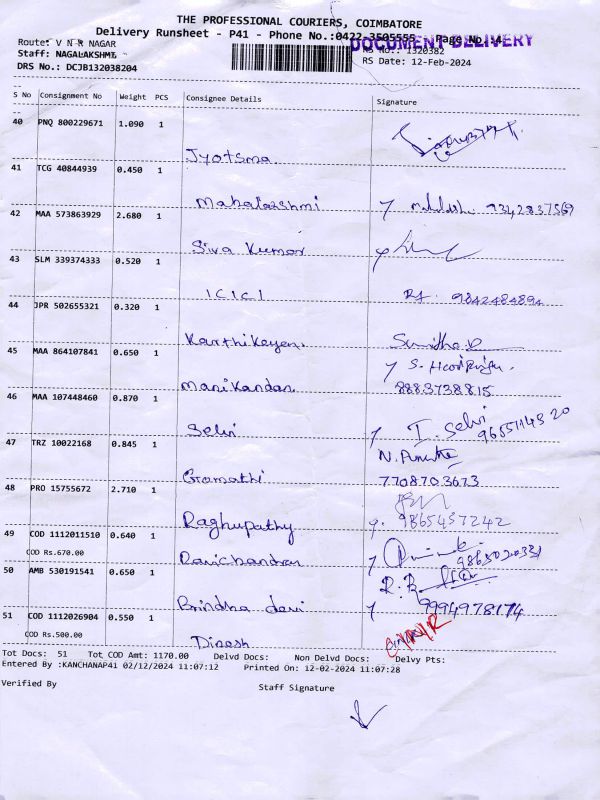 THE PROFESSIONAL COURIERS, COIMBATORE
Delivery Runsheet - P41 - Phone No.:0422-3505555. Page No.:4
DOCUMENT DELIVERY
Route: V N R NAGAR
RS No.: 1320382
Staff: NAGALAKSHMI
RS Date: 12-Feb-2024
DRS No.: DCJB132038204
S No Consignment No Weight PCS Consignee Details Signature
40 PNQ 800229671 1.090 1
Jyotsma
41 TCG 40844939 0.450 1
Mahalakshmi 9342837569
42 MAA 573863929 2.680 1
Siva Kumar
43 SLM 339374333 0.520 1
ICICI 9842484894
44 JPR 502655321 0.320 1
Karthikeyen.
45 MAA 864107841 0.650 1
Manikandan 8883738815
46 MAA 107448460 0.870 1
Selvi I. Selvi 9655114320
47 TRZ 10022168 0.845 1
Gomathi 7708703673
48 PRO 15755672 2.710 1
Raghupathy 9865437242
49 COD 1112011510 0.640 1
COD Rs.670.00
Ravichandran
50 AMB 530191541 0.650 1
Brindha devi 9994978174
51 COD 1112026904 0.550 1
COD Rs.500.00
Dinesh
Tot Docs: 51 Tot COD Amt: 1170.00 Delvd Docs: Non Delvd Docs: Delvy Pts:
Entered By :KANCHANAP41 02/12/2024 11:07:12 Printed On: 12-02-2024 11:07:28
Verified By Staff Signature